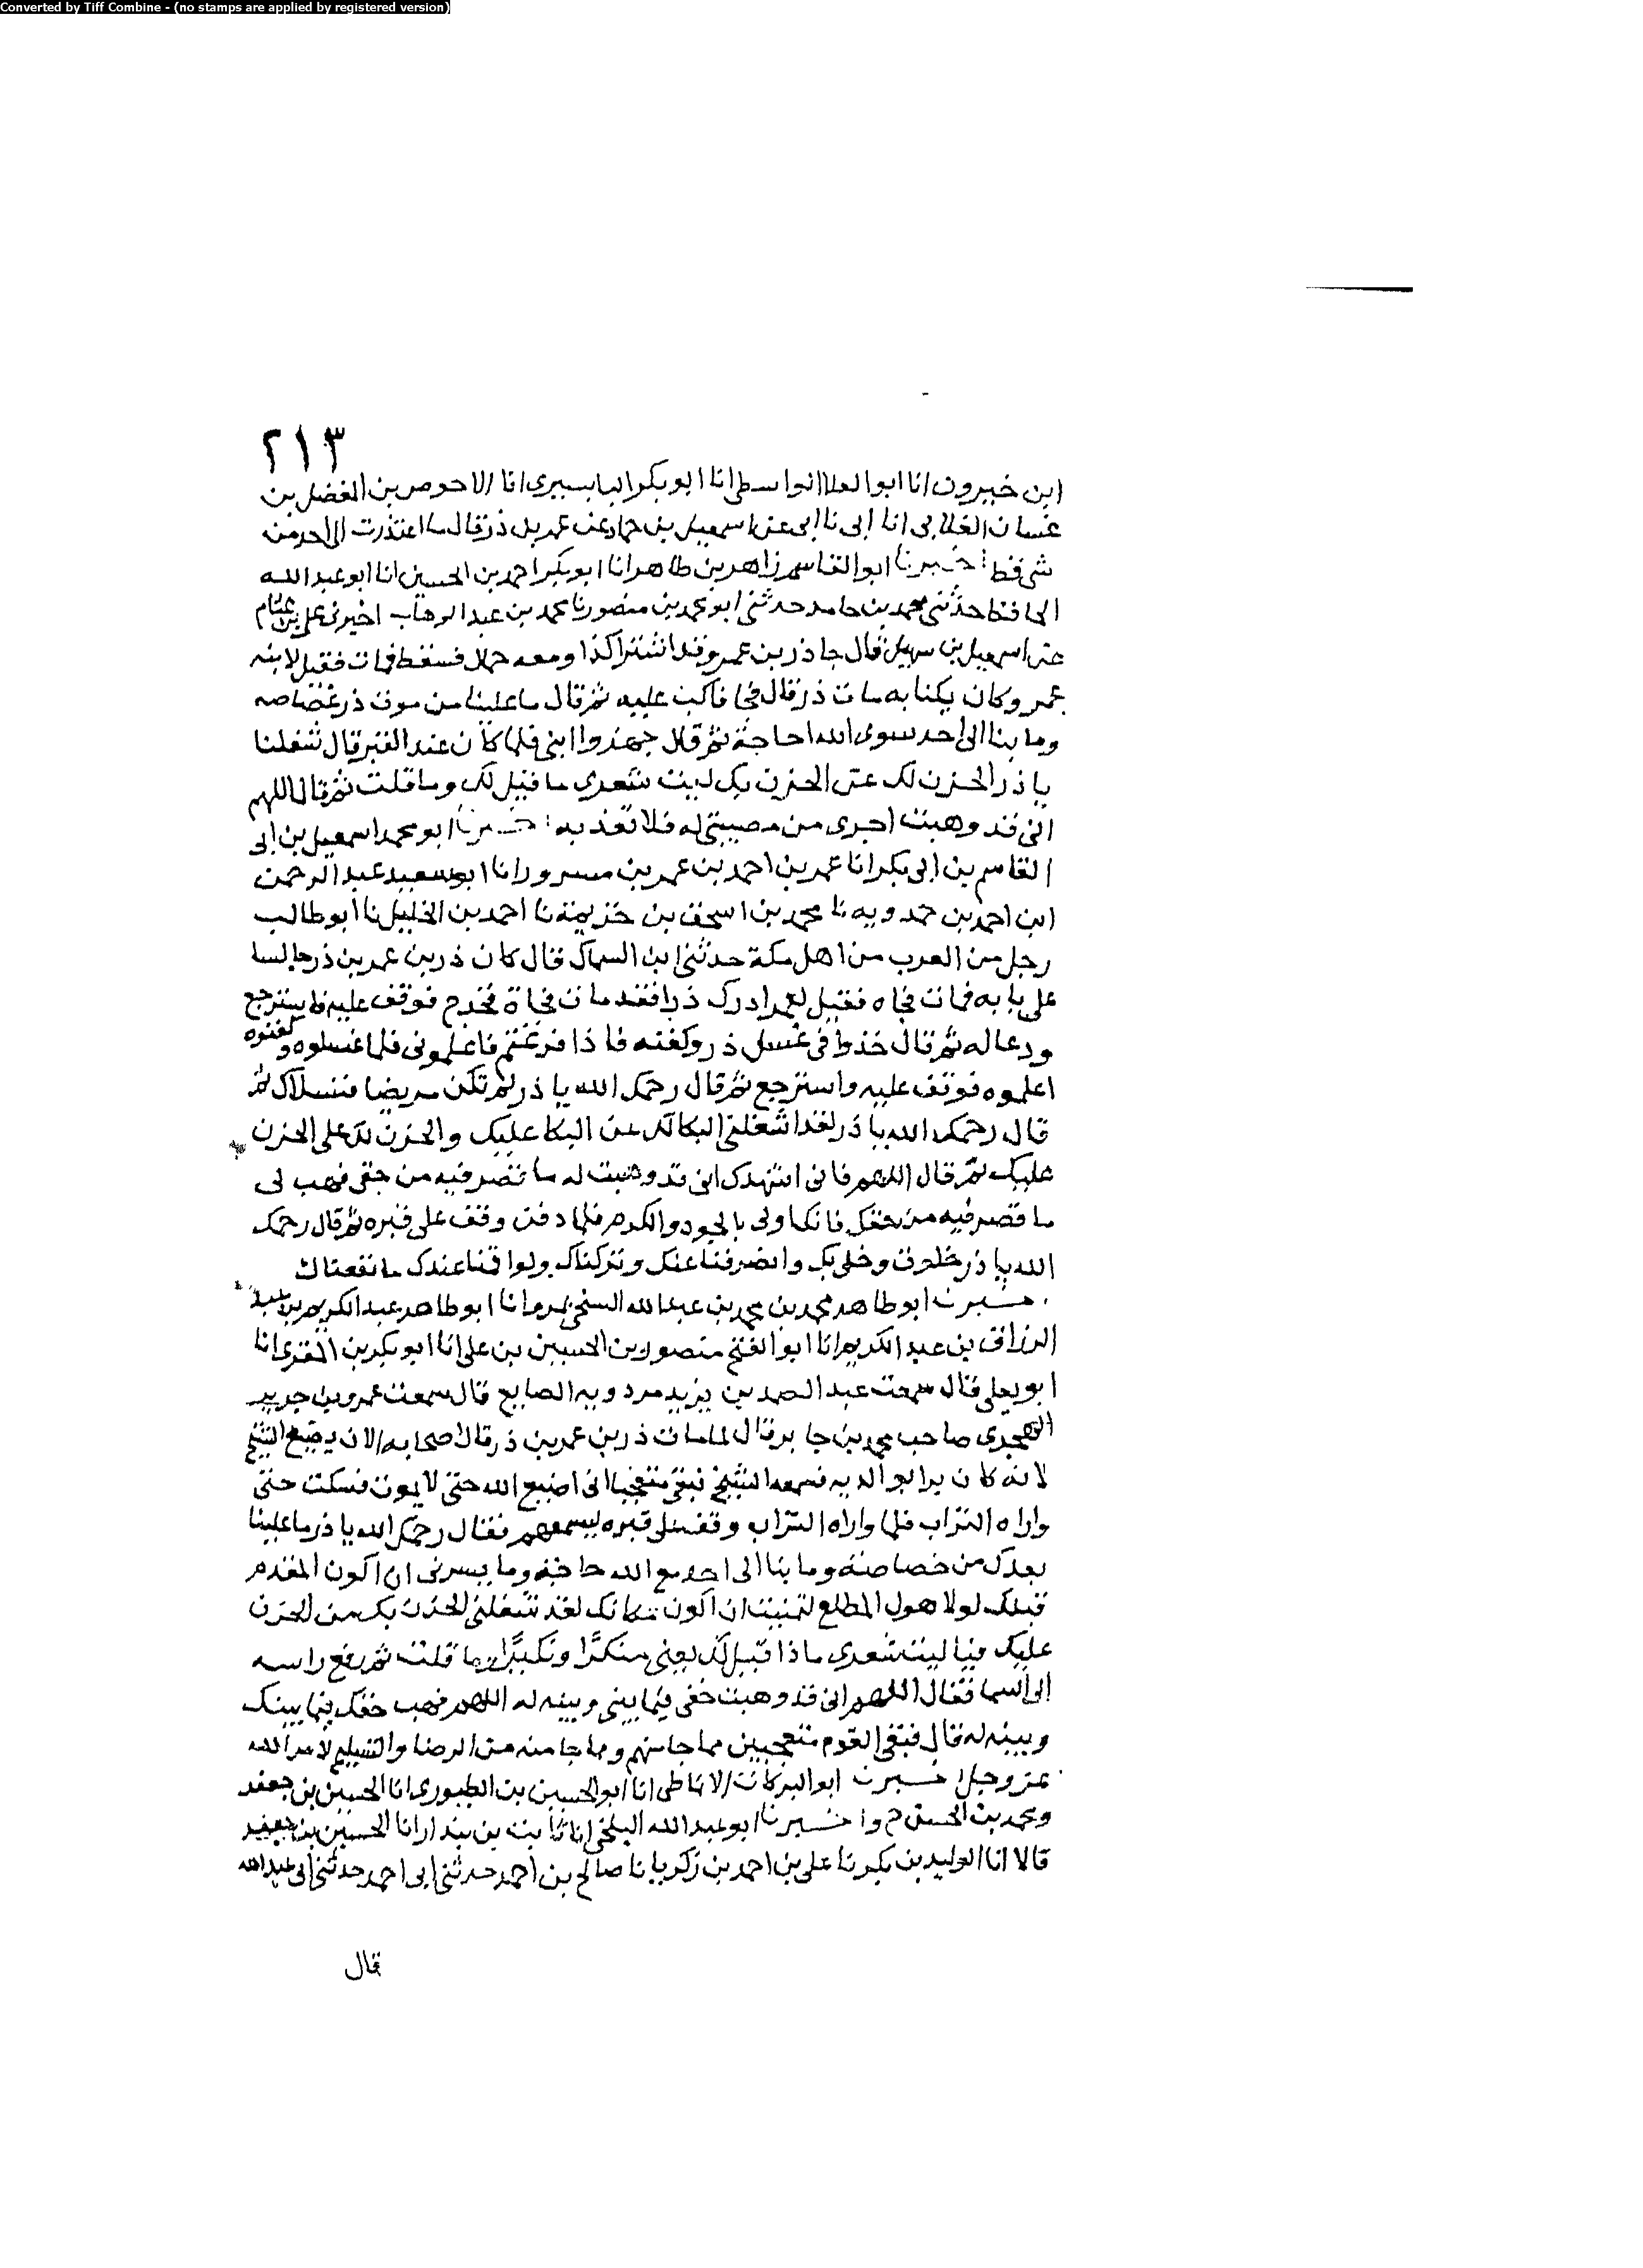 Converted by Tiff Combine - (no stamps are applied by registered version)
٢١٣
ابن خيرون انا ابو العلا الواسطى انا ابو بكر البابسيرى انا الاحوص بن الفضل بن
غسان الغلابى انا ابى نا ابى عن اسمعيل بن حماد عن عمر بن ذر قال ما اعتذرت الى احد من
شى قط اخبرنا ابو القاسم زاهر بن طاهر انا ابو بكر احمد بن الحسين انا ابو عبد الله
الحافظ حدثنى محمد بن حامد حدثنى ابو محمد بن منصور نا محمد بن عبد الوهاب اخبرنى على بن عثام
عن اسمعيل بن سهيل قال جا ذر بن عمر وقد اشترا كذا ومعه حمال فسقط فمات فقيل لابنه
عمر وكان يكنا به مات ذر قال فجا فاكب عليه ثم قال ما علينا من موت ذر غضاصه
وما بنا الى احد سوى الله حاجة ثم قال جهزوا ابنى فلما كان عند القبر قال شغلنا
يا ذر الحزن لك عن الحزن بك ليت شعرى ما قيل لك وما قلت ثم قال اللهم
انى قد وهبت اجرى من مصيبتى له فلا تعذبه اخبرنا ابو محمد اسمعيل بن ابى
القاسم بن ابى بكر انا عمر بن احمد بن عمر بن مسرور انا ابو سعيد عبد الرحمن
ابن احمد بن حمدويه نا محمد بن اسحق بن خزيمة نا احمد بن الخليل نا ابو طالب
رجل من العرب من اهل مكة حدثنى ابن السماك قال كان ذر بن عمر بن ذر جالسا
على بابه فمات فجاه فقيل لعمر ادرك ذرا فقد مات فجاة فخرج فوقف عليه فاسترجع
ودعا له ثم قال خذوا فى غسل ذر وكفنه فاذا فرغتم فاعلمونى فلما غسلوه وكفنوه
اعلموه فوقف عليه واسترجع ثم قال رحمك الله يا ذر لم تكن مريضا فنسلاك ثم
قال رحمك الله يا ذر لقد اشغلنى البكا لك عن البكا عليك والحزن لك على الحزن
عليك ثم قال اللهم فانى اشهدك انى قد وهبت له ما قصر فيه من حقى فهب لى
ما قصر فيه من حقك فانك اولى بالجود والكرم فلما دفن وقف على قبره ثم قال رحمك
الله يا ذر خلوت وخلى بك وانصرفنا عنك وتركناك ولو اقمنا عندك ما نفعناك
اخبرنا ابو طاهر محمد بن محمد بن عبد الله السنجى بمرو انا ابو طاهر عبد الكريم بن عبد
الرزاق بن عبد الكريم انا ابو الفتح منصور بن الحسين بن على انا ابو بكر بن المقرى انا
ابو يعلى قال سمعت عبد الصمد بن يزيد مردويه الصايغ قال سمعت عمرو بن جرير
الهجرى صاحب محمد بن جابر قال لما مات ذر بن عمر بن ذر قال اصحابه الان يضيع الشيخ
لانه كان برا بوالديه فسمعه الشيخ فبقى متعجبا انى اضيع الله حتى لا يموت فسكت حتى
واراه التراب فلما واراه التراب وقف على قبره ليسمعهم فقال رحمك الله يا ذر ما علينا
بعدك من خصاصة وما بنا الى احد مع الله حاجة وما يسرنى ان اكون المقدم
قبلك لولا هول المطلع لتمنيت ان اكون مكانك لقد شغلنى الحزن بك من الحزن
عليك فيا ليت شعرى ماذا قيل لك يعنى منكرًا ونكيرًا وما قلت ثم رفع راسه
الى السما فقال اللهم انى قد وهبت حقى فيما بينى وبينه له اللهم فهب حقك فيما بينك
وبينه له قال فبقى القوم متعجبين مما جا منهم ومما جا منه من الرضا والتسليم لامر الله
عز وجل اخبرنا ابو البركات الانماطى انا ابو الحسين بن الطيورى انا الحسين بن جعفر
ومحمد بن الحسن ح واخبرنا ابو عبد الله البلخى انا ثابت بن بندار انا الحسين بن جعفر
قالا انا الوليد بن بكر نا على بن احمد بن زكريا نا صالح بن احمد حدثنى ابى احمد حدثنى ابى عبد الله
قال